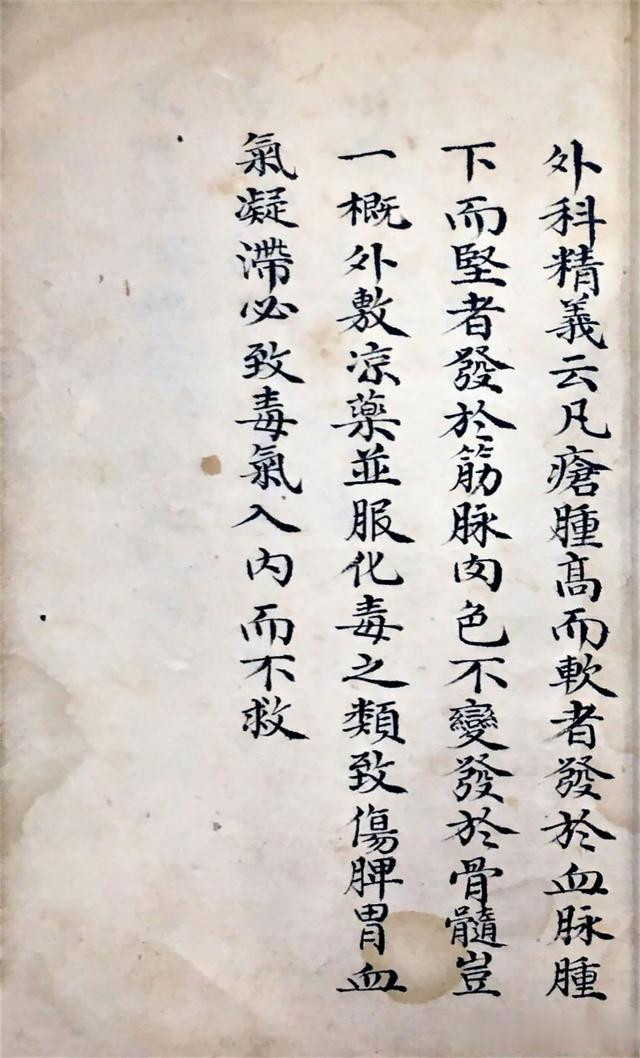 外科精義云凡瘡腫高而軟者發於血脉腫
下而堅者發於筋脉肉色不變發於骨髓豈
一概外敷凉藥並服化毒之類致傷脾胃血
氣凝滯必致毒氣入内而不救